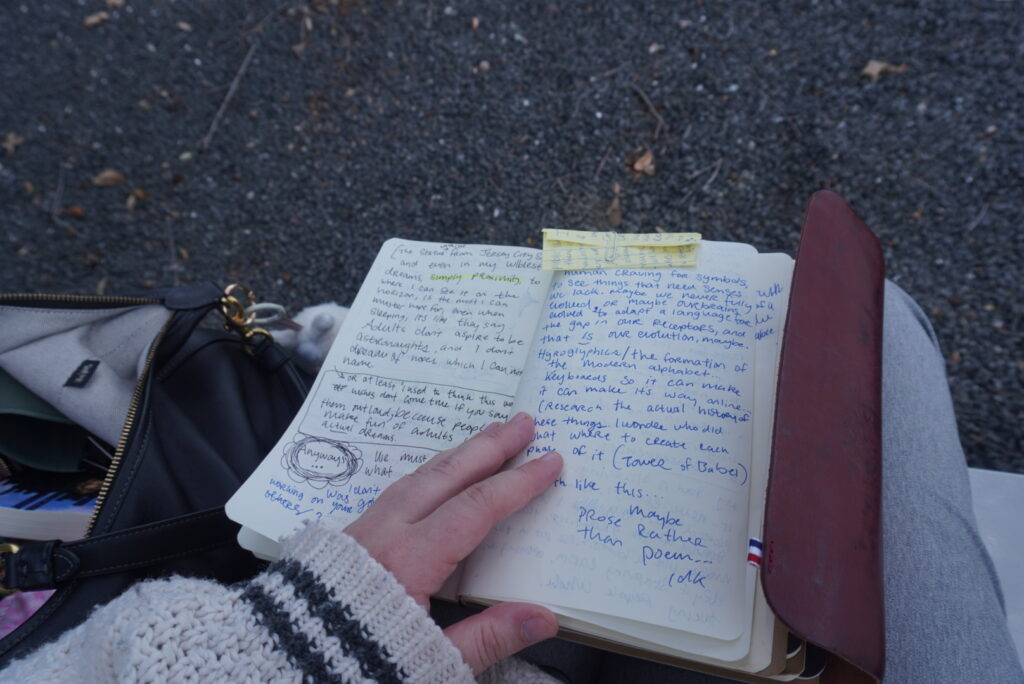 (The statue from Jersey City
and even in my wildest
dreams, simply proximity, so
where I can see it on the
horizon, is the most I can
muster hope for, even when
sleeping, it's like they say
Adults don't aspire to be
astronaughts, and I don't
dream of roses which I can not
name
or at least I used to think this was
wishes don't come true if you say
them out loud, because people
make fun of adults
actual dreams.
Anyways
...
We must
what
working on
others
human craving for symbols,
to see things that need senses
we lack. Maybe we never fully
evolved, or maybe overbrains
evolved to adapt a language for
the gap in our receptors, and
that is our evolution, maybe.
Hyroglyphics/the formation of
the modern alphabet.
Keyboards so it can make
it can make its way online...
(Research the actual history of
these things. I wonder who did
what where to create each
phase of it (Tower of Babel)
like this...
Maybe
prose rather
than poem...
idk